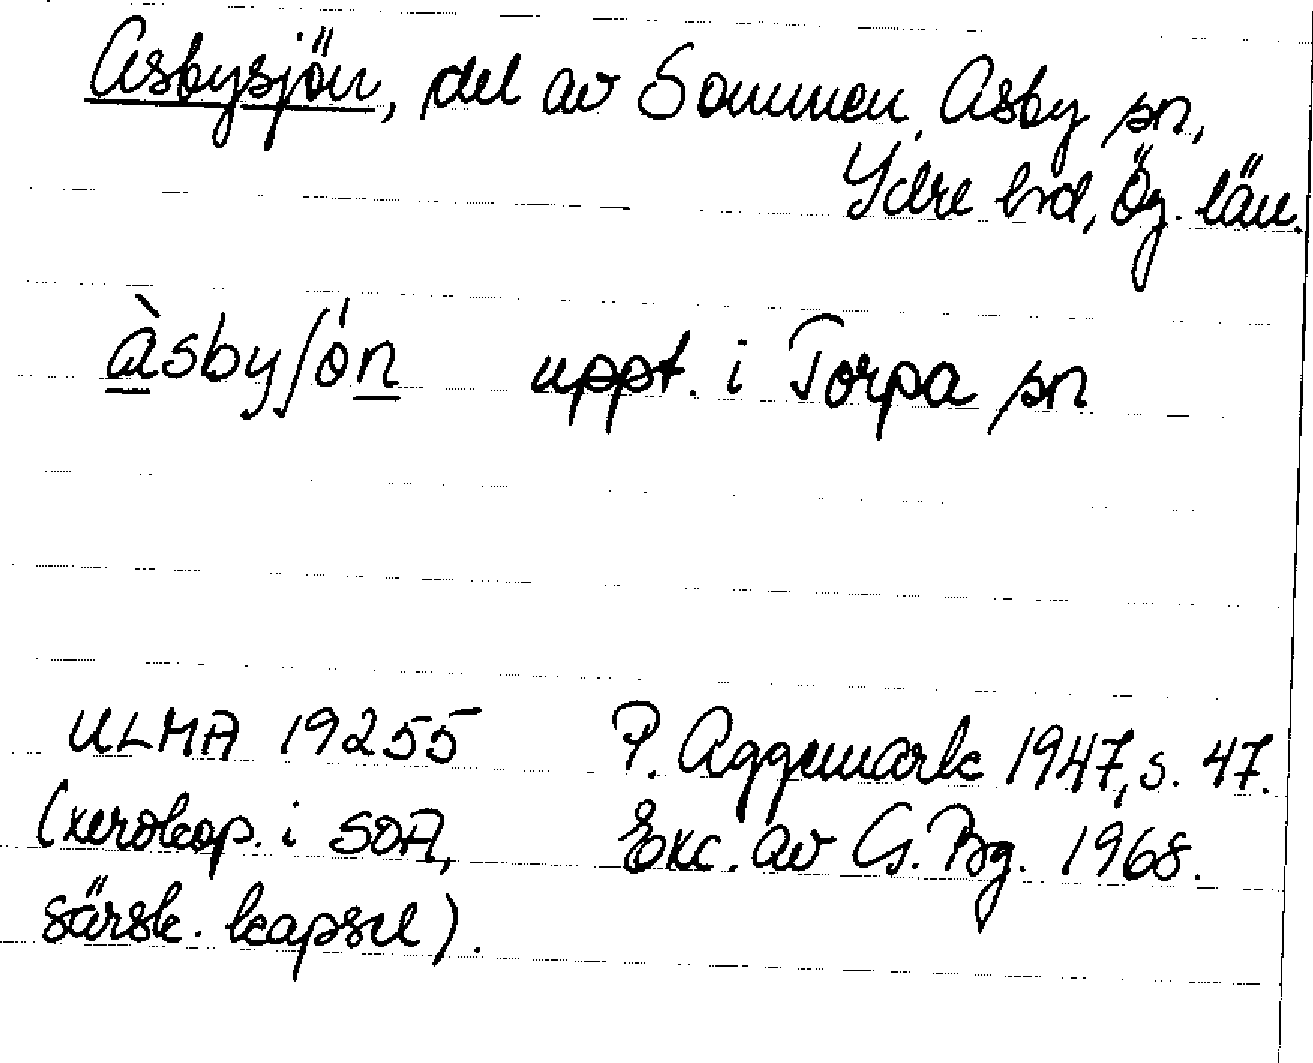 Asbysjön, del av Sommen, Asby sn,
Ydre hd, Ög. län.
àsbyʃón uppt. i Torpa sn
ULMA 19255 P. Aggemark 1947, s. 47.
(xerokop. i SOA, Exc. av G. Bg. 1968.
särsk. kapsel).